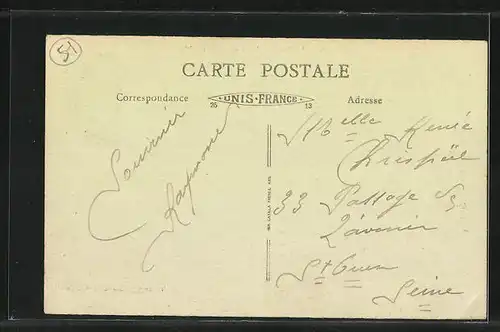 51
CARTE POSTALE
Correspondance
UNIS-FRANCE
26 13
Adresse
Souvenir
Raymond
Melle Renée
33 Passage
L'avenir
St Ouen
Seine